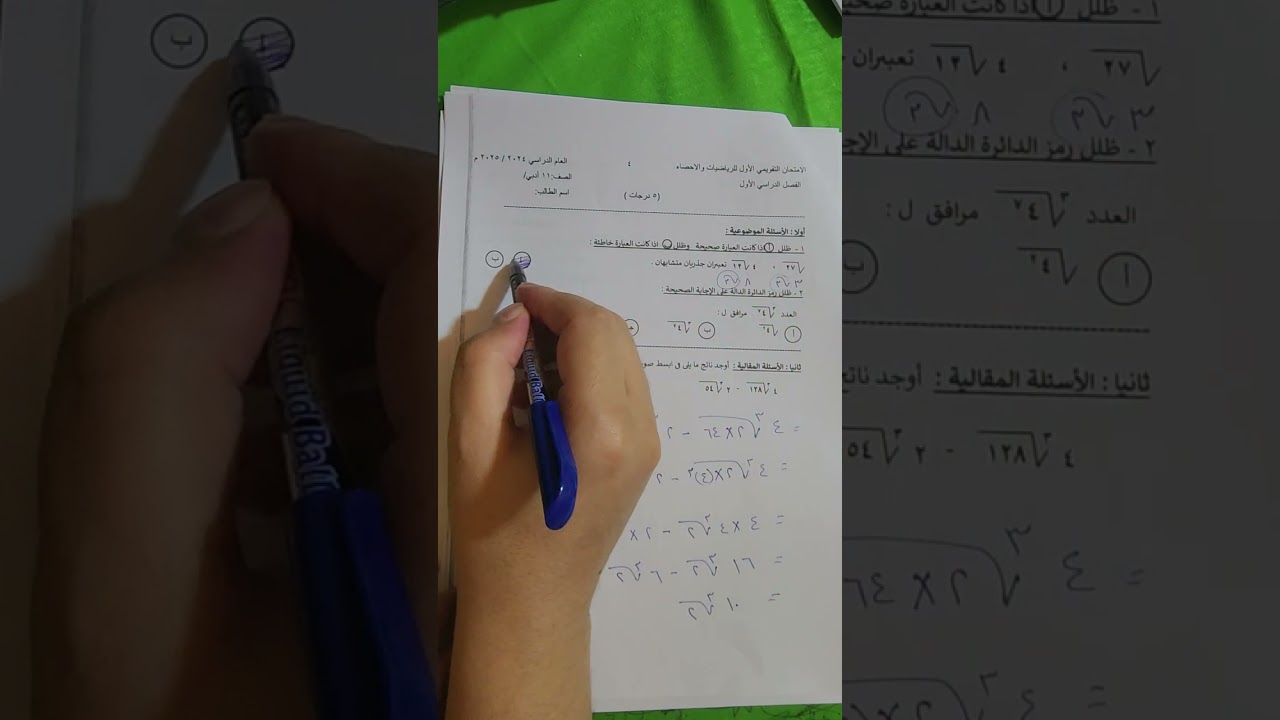 الامتحان التقويمي الأول للرياضيات والاحصاء ٤ العام الدراسي ٢٠٢٤ / ٢٠٢٥ م
الفصل الدراسي الأول (٥ درجات) الصف: ١١ أدبي/
اسم الطالب:
أولا : الأسئلة الموضوعية :
١ - ظلل أ اذا كانت العبارة صحيحة وظلل ب اذا كانت العبارة خاطئة :
√٢٧ ، ٤√١٢ تعبيران جذريان متشابهان . أ ب
٣√٣ ٨√٣
٢ - ظلل رمز الدائرة الدالة على الإجابة الصحيحة :
العدد مرافق ل :
أ ب ج
ثانيا : الأسئلة المقالية : أوجد ناتج ما يلى فى ابسط صو
٤ ∛١٢٨ - ٢ ∛٥٤
= ٤ ∛٢×٦٤ - ٢
= ٤ ∛٢×(٤)٣ - ٢
= ٤×٤ ∛٢ - ٢×
= ١٦ ∛٢ - ٦ ∛٢
= ١٠ ∛٢